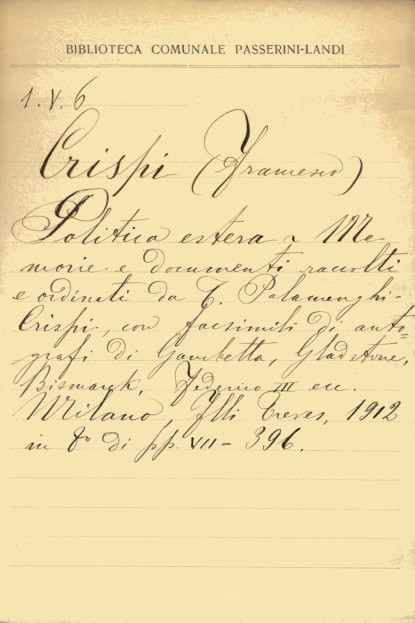 BIBLIOTECA COMUNALE PASSERINI-LANDI
1. V. 6
Crispi (Francesco)
Politica estera ~ Me
morie e documenti raccolti
e ordinati da T. Palamenghi-
Crispi, con facsimili di auto=
grafi di Gambetta, Gladstone,
Bismarck, Federico III ecc.
Milano, Flli Treves, 1912
in 8º di pp. VII - 396.